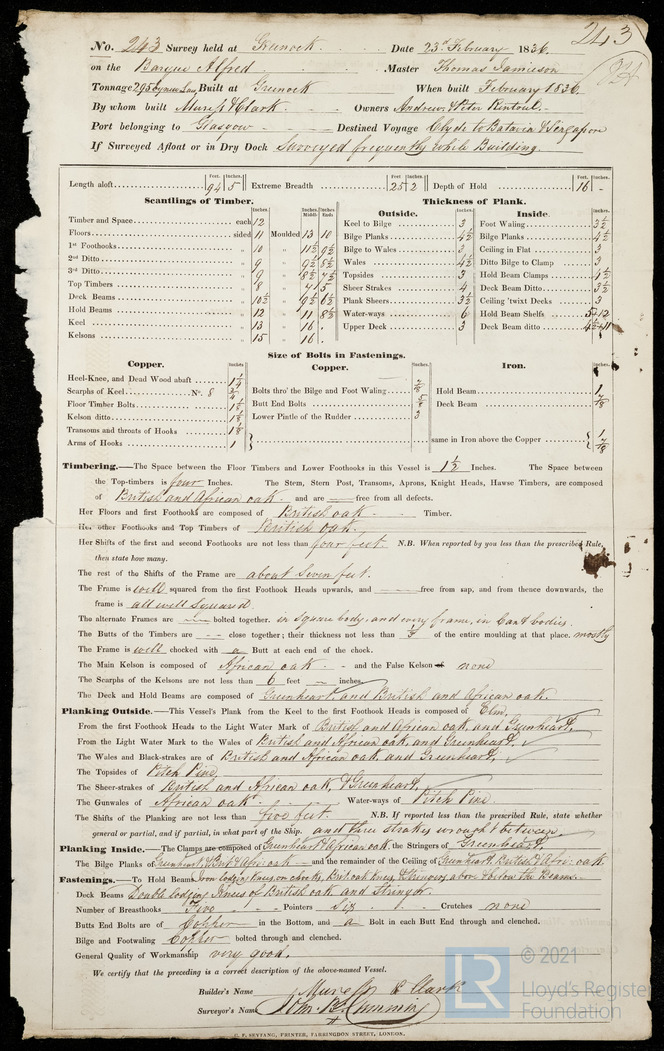 243
No. 243 Survey held at Greenock Date 23rd February 1836
on the Barque Alfred Master Thomas Jamieson
Tonnage 295 Built at Greenock When built February 1836
By whom built Muress & Clark Owners Andrew & Peter Rintoul
Port belonging to Glasgow Destined Voyage Clyde to Batavia & Singapore
If Surveyed Afloat or in Dry Dock Surveyed frequently while Building.
Feet. Inches. Feet. Inches. Feet. Inches.
Length aloft 94 5 Extreme Breadth 25 2 Depth of Hold 16 -
Scantlings of Timber. Thickness of Plank.
Inches. Inches Middle Inches Ends Outside. Inches. Inside. Inches.
Timber and Space each 12 Keel to Bilge 3 Foot Waling 3½
Floors sided 11 Moulded 13 10 Bilge Planks 4½ Bilge Planks 4½
1st Foothooks „ 10 „ 11½ 9½ Bilge to Wales 3 Ceiling in Flat 3
2nd Ditto „ 9 „ 9½ 8½ Wales 4½ Ditto Bilge to Clamp 3
3rd Ditto „ 9 „ 8½ 7½ Topsides 3 Hold Beam Clamps 4½
Top Timbers „ 8 „ 7 5 Sheer Strakes 4 Deck Beam Ditto 3½
Deck Beams „ 10½ „ 9½ 6½ Plank Sheers 3½ Ceiling 'twixt Decks 3
Hold Beams „ 12 „ 11 8½ Water-ways 6 Hold Beam Shelfs 5+12
Keel „ 13 „ 16 Upper Deck 3 Deck Beam ditto 4½+11
Kelsons „ 15 „ 16
Size of Bolts in Fastenings.
Copper. Inches Copper. Inches Iron. Inches
Heel-Knee, and Dead Wood abaft 1¼
Scarphs of Keel No. 8 ¾ Bolts thro' the Bilge and Foot Waling Hold Beam 1
Floor Timber Bolts 1⅛ Butt End Bolts Deck Beam ⅞
Kelson ditto 1⅛ Lower Pintle of the Rudder 3
Transoms and throats of Hooks 1⅛
Arms of Hooks 1 same in Iron above the Copper 1 ⅞
Timbering.—The Space between the Floor Timbers and Lower Foothooks in this Vessel is 1½ Inches. The Space between
the Top-timbers is four Inches. The Stem, Stern Post, Transoms, Aprons, Knight Heads, Hawse Timbers, are composed
of British and African oak and are free from all defects.
Her Floors and first Foothooks are composed of British oak Timber.
Her other Foothooks and Top Timbers of British Oak.
Her Shifts of the first and second Foothooks are not less than four feet. N.B. When reported by you less than the prescribed Rule,
then state how many.
The rest of the Shifts of the Frame are about Seven feet.
The Frame is well squared from the first Foothook Heads upwards, and free from sap, and from thence downwards, the
frame is all well Squared
The alternate Frames are bolted together. in square body, and every frame, in Cant bodies.
The Butts of the Timbers are close together; their thickness not less than ⅓ of the entire moulding at that place. mostly
The Frame is well chocked with a Butt at each end of the chock.
The Main Kelson is composed of African oak and the False Kelson none
The Scarphs of the Kelsons are not less than 6 feet inches.
The Deck and Hold Beams are composed of Greenheart, and British and African oak
Planking Outside.—This Vessel's Plank from the Keel to the first Foothook Heads is composed of Elm,
From the first Foothook Heads to the Light Water Mark of British and African oak, and Greenheart,
From the Light Water Mark to the Wales of British and African oak, and Greenheart,
The Wales and Black-strakes are of British and African oak, and Greenheart,
The Topsides of Pitch Pine
The Sheer-strakes of British and African oak, & Greenheart,
The Gunwales of African oak Water-ways of Pitch Pine
The Shifts of the Planking are not less than five feet. N.B. If reported less than the prescribed Rule, state whether
general or partial, and if partial, in what part of the Ship. and three strakes wrought between
Planking Inside.—The Clamps are composed of Greenheart & African oak, the Stringers of Greenheart,
The Bilge Planks of Greenheart & Brit & Afric oak and the remainder of the Ceiling of Greenheart, British & Afric oak.
Fastenings.—To Hold Beams Iron lodging knees, on chocks, Brit oak knees, & stringers, above & below the Beams.
Deck Beams Double lodging Knees of British oak and Stringer.
Number of Breasthooks Five Pointers Six Crutches none
Butts End Bolts are of Copper in the Bottom, and a Bolt in each Butt End through and clenched.
Bilge and Footwaling Copper bolted through and clenched.
General Quality of Workmanship very good.
We certify that the preceding is a correct description of the above-named Vessel.
Builder's Name Muress & Clark
Surveyor's Name
C. F. SEYFANG, PRINTER, FARRINGDON STREET, LONDON.
LR
© 2021
Lloyd's Register
Foundation